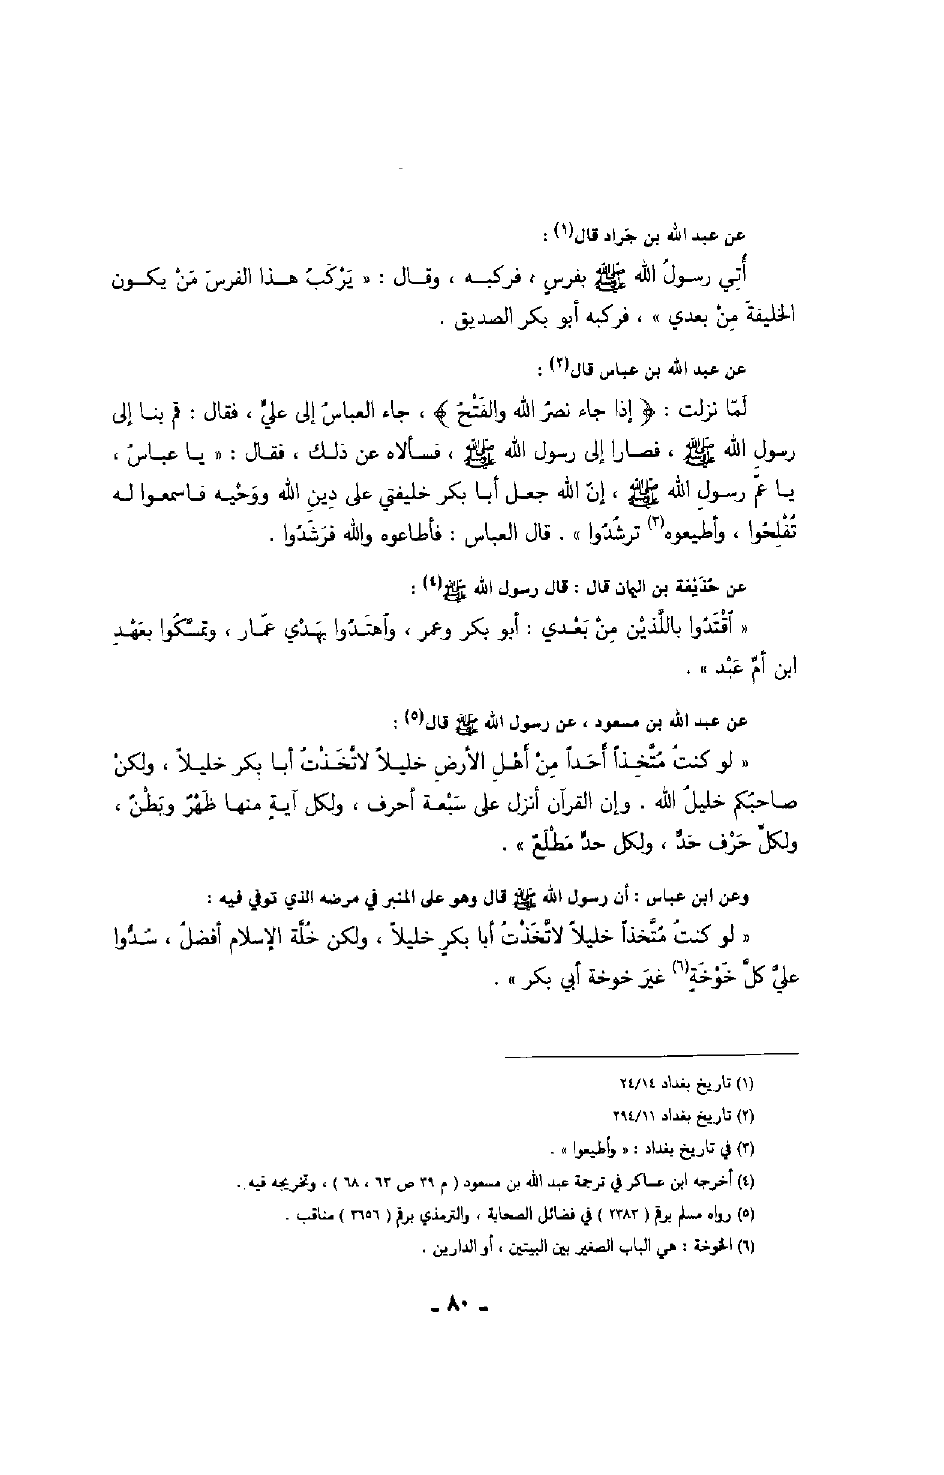 عن عبد الله بن جَراد قال(١) :
أُتي رسولُ الله ﷺ بفرسٍ ، فركبـه ، وقـال : « يَرْكَبُ هـذا الفرسَ مَنْ يكـون
الخليفةَ مِنْ بعدي » ، فركبه أبو بكر الصديق .
عن عبد الله بن عباس قال(٢) :
لَمّا نزلت : ﴿ إذا جاء نصرُ الله والفَتْحُ ﴾ ، جاء العباسُ إلى عليٍّ ، فقال : قم بنـا إلى
رسولِ الله ﷺ ، فصارا إلى رسول الله ﷺ ، فسألاه عن ذلـك ، فقـال : « يـا عبـاسُ ،
يـا عمَّ رسولِ الله ﷺ ، إنّ الله جعل أبـا بكر خليفتي على دِينِ الله ووَحْيـه فـاسمعوا لـه
تُفْلِحُوا ، وأطيعوه(٣) ترشُدُوا » . قال العباس : فأطاعوه والله فرَشَدُوا .
عن حُذَيْفة بن اليمان قال : قال رسول الله ﷺ(٤) :
« ٱقْتَدُوا باللَّذَيْن مِنْ بَعْـدي : أبو بكر وعمر ، وٱهتَدُوا بهَدْي عمّـار ، وتمسَّكُوا بعَهْـدِ
ابن أمِّ عَبْد » .
عن عبد الله بن مسعود ، عن رسول الله ﷺ قال(٥) :
« لو كنتُ مُتَّخِذاً أحَداً مِنْ أهْـلِ الأرضِ خليلاً لاتَّخَذْتُ أبـا بكر خليـلاً ، ولكنْ
صاحبُكم خليلُ الله . وإن القرآن أنزل على سَبْعـة أحرف ، ولكل آيـةٍ منهـا ظَهْرٌ وبَطْنٌ ،
ولكلِّ حَرْف حَدٌّ ، ولكل حدٍّ مَطْلَعٌ » .
وعن ابن عباس : أن رسول الله ﷺ قال وهو على المنبر في مرضه الذي توفي فيه :
« لو كنتُ مُتَّخذاً خليلاً لاتَّخَذْتُ أبا بكرٍ خليلاً ، ولكن خُلَّة الإسلام أفضلُ ، سُدُّوا
عليَّ كلَّ خَوْخَةٍ(٦) غيرَ خوخة أبي بكر » .
(١) تاريخ بغداد ٢٤/١٤
(٢) تاريخ بغداد ٢٩٤/١١
(٣) في تاريخ بغداد : « وأطيعوا » .
(٤) أخرجه ابن عساكر في ترجمة عبد الله بن مسعود ( م ٣٩ ص ٦٣ ، ٦٨ ) ، وتخريجه فيه .
(٥) رواه مسلم برقم ( ٢٣٨٣ ) في فضائل الصحابة ، والترمذي برقم ( ٣٦٥٦ ) مناقب .
(٦) الخوخة : هي الباب الصغير بين البيتين ، أو الدارين .
ـ ٨٠ ـ